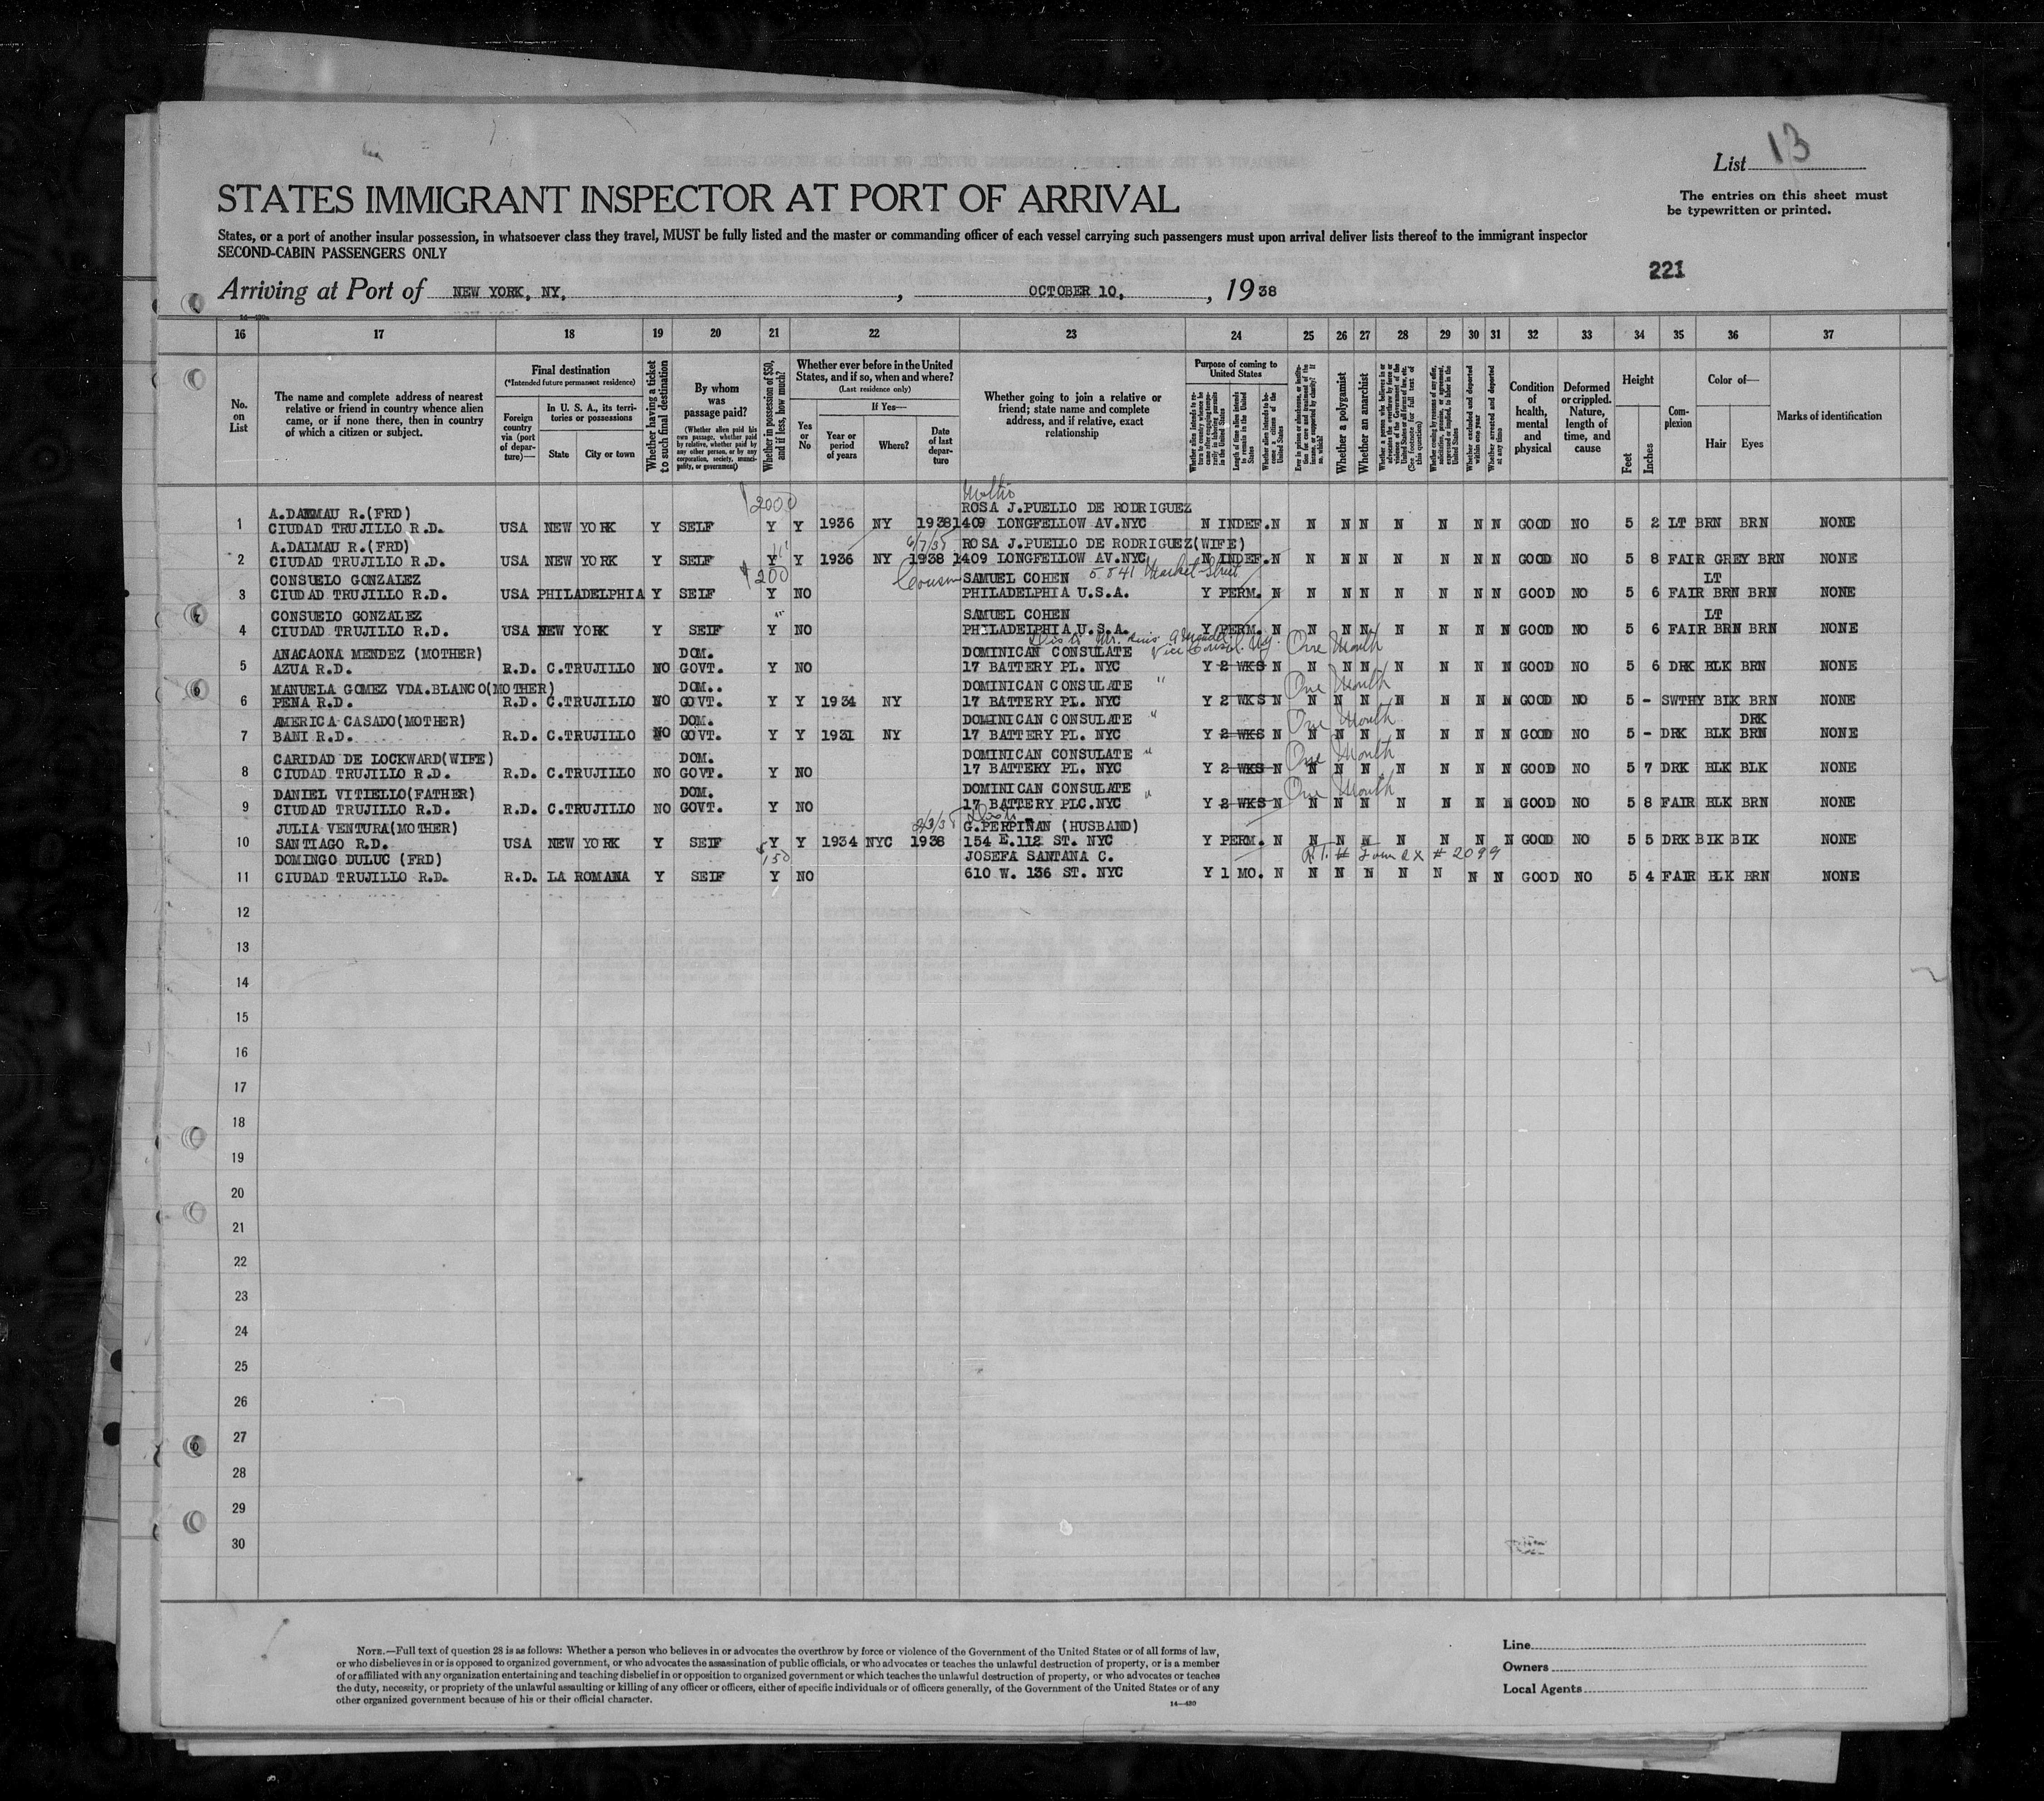 List 13
The entries on this sheet must
be typewritten or printed.
STATES IMMIGRANT INSPECTOR AT PORT OF ARRIVAL
States, or a port of another insular possession, in whatsoever class they travel, MUST be fully listed and the master or commanding officer of each vessel carrying such passengers must upon arrival deliver lists thereof to the immigrant inspector
SECOND-CABIN PASSENGERS ONLY
221
Arriving at Port of NEW YORK, NY, , OCTOBER 10, , 1938
16 17 18 19 20 21 22 23 24 25 26 27 28 29 30 31 32 33 34 35 36 37
No. on List
The name and complete address of nearest relative or friend in country whence alien came, or if none there, then in country of which a citizen or subject.
Final destination
(*Intended future permanent residence)
Foreign country via (port of departure)—
In U. S. A., its territories or possessions
State
City or town
Whether having a ticket to such final destination
By whom was passage paid?
(Whether alien paid his own passage, whether paid by relative, whether paid by any other person, or by any corporation, society, municipality, or government)
Whether in possession of $50, and if less, how much?
Whether ever before in the United States, and if so, when and where?
(Last residence only)
Yes or No
If Yes—
Year or period of years
Where?
Date of last departure
Whether going to join a relative or friend; state name and complete address, and if relative, exact relationship
Purpose of coming to United States
Length of time alien intends to remain in the United States
Whether a polygamist
Whether an anarchist
Whether excluded and deported within one year
Whether arrested and deported at any time
Condition of health, mental and physical
Deformed or crippled. Nature, length of time, and cause
Height
Feet
Inches
Complexion
Color of—
Hair
Eyes
Marks of identification
$2000
A.DALMAU R.(FRD) ROSA J.PUELLO DE RODRIGUEZ
1 CIUDAD TRUJILLO R.D. USA NEW YORK Y SELF Y Y 1936 NY 1938 1409 LONGFELLOW AV.NYC N INDEF. N N N N N N N N GOOD NO 5 2 LT BRN BRN NONE
A.DALMAU R.(FRD) 6/7/38 ROSA J.PUELLO DE RODRIGUEZ(WIFE)
2 CIUDAD TRUJILLO R.D. USA NEW YORK Y SELF Y Y 1936 NY 1938 1409 LONGFELLOW AV.NYC N INDEF. N N N N N N N N GOOD NO 5 8 FAIR GREY BRN NONE
CONSUELO GONZALEZ $200 Cousin SAMUEL COHEN 5841 Market Street LT
3 CIUDAD TRUJILLO R.D. USA PHILADELPHIA Y SELF Y NO PHILADELPHIA U.S.A. Y PERM. N N N N N N N N GOOD NO 5 6 FAIR BRN BRN NONE
CONSUELO GONZALEZ " SAMUEL COHEN LT
4 CIUDAD TRUJILLO R.D. USA NEW YORK Y SEIF Y NO PHILADELPHIA U.S.A. Y PERM. N N N N N N N N GOOD NO 5 6 FAIR BRN BRN NONE
Vice Consul Ny. One Month
ANACAONA MENDEZ (MOTHER) DOM. DOMINICAN CONSULATE
5 AZUA R.D. R.D. C.TRUJILLO NO GOVT. Y NO 17 BATTERY PL. NYC Y 2 WKS N N N N N N N N GOOD NO 5 6 DRK BLK BRN NONE
MANUELA GOMEZ VDA.BLANCO(MOTHER) DOM.. DOMINICAN CONSULATE " One Month
6 PENA R.D. R.D. C.TRUJILLO NO GOVT. Y Y 1934 NY 17 BATTERY PL. NYC Y 2 WKS N N N N N N N N GOOD NO 5 - SWTHY BIK BRN NONE
AMERICA CASADO(MOTHER) DOM. DOMINICAN CONSULATE " One Month DRK
7 BANI R.D. R.D. C.TRUJILLO NO GOVT. Y Y 1931 NY 17 BATTERY PL. NYC Y 2 WKS N N N N N N N N GOOD NO 5 - DRK BLK BRN NONE
CARIDAD DE LOCKWARD(WIFE) DOM. DOMINICAN CONSULATE " One Month
8 CIUDAD TRUJILLO R.D. R.D. C.TRUJILLO NO GOVT. Y NO 17 BATTERY PL. NYC Y 2 WKS N N N N N N N N GOOD NO 5 7 DRK BLK BLK NONE
DANIEL VITIELLO(FATHER) DOM. DOMINICAN CONSULATE " One Month
9 CIUDAD TRUJILLO R.D. R.D. C.TRUJILLO NO GOVT. Y NO 17 BATTERY PLC.NYC Y 2 WKS N N N N N N N N GOOD NO 5 8 FAIR BLK BRN NONE
JULIA VENTURA(MOTHER) G.PERPINAN (HUSBAND)
10 SANTIAGO R.D. USA NEW YORK Y SEIF Y Y 1934 NYC 1938 154 E.112 ST. NYC Y PERM. N N N N N N N N GOOD NO 5 5 DRK BIK BIK NONE
DOMINGO DULUC (FRD) $150 JOSEFA SANTANA C. # 2099
11 CIUDAD TRUJILLO R.D. R.D. LA ROMANA Y SEIF Y NO 610 W. 136 ST. NYC Y 1 MO. N N N N N N N N GOOD NO 5 4 FAIR BLK BRN NONE
12
13
14
15
16
17
18
19
20
21
22
23
24
25
26
27
28
29
30
NOTE.—Full text of question 28 is as follows: Whether a person who believes in or advocates the overthrow by force or violence of the Government of the United States or of all forms of law,
or who disbelieves in or is opposed to organized government, or who advocates the assassination of public officials, or who advocates or teaches the unlawful destruction of property, or is a member
of or affiliated with any organization entertaining and teaching disbelief in or opposition to organized government or which teaches the unlawful destruction of property, or who advocates or teaches
the duty, necessity, or propriety of the unlawful assaulting or killing of any officer or officers, either of specific individuals or of officers generally, of the Government of the United States or of any
other organized government because of his or their official character.
14—430
Line
Owners
Local Agents